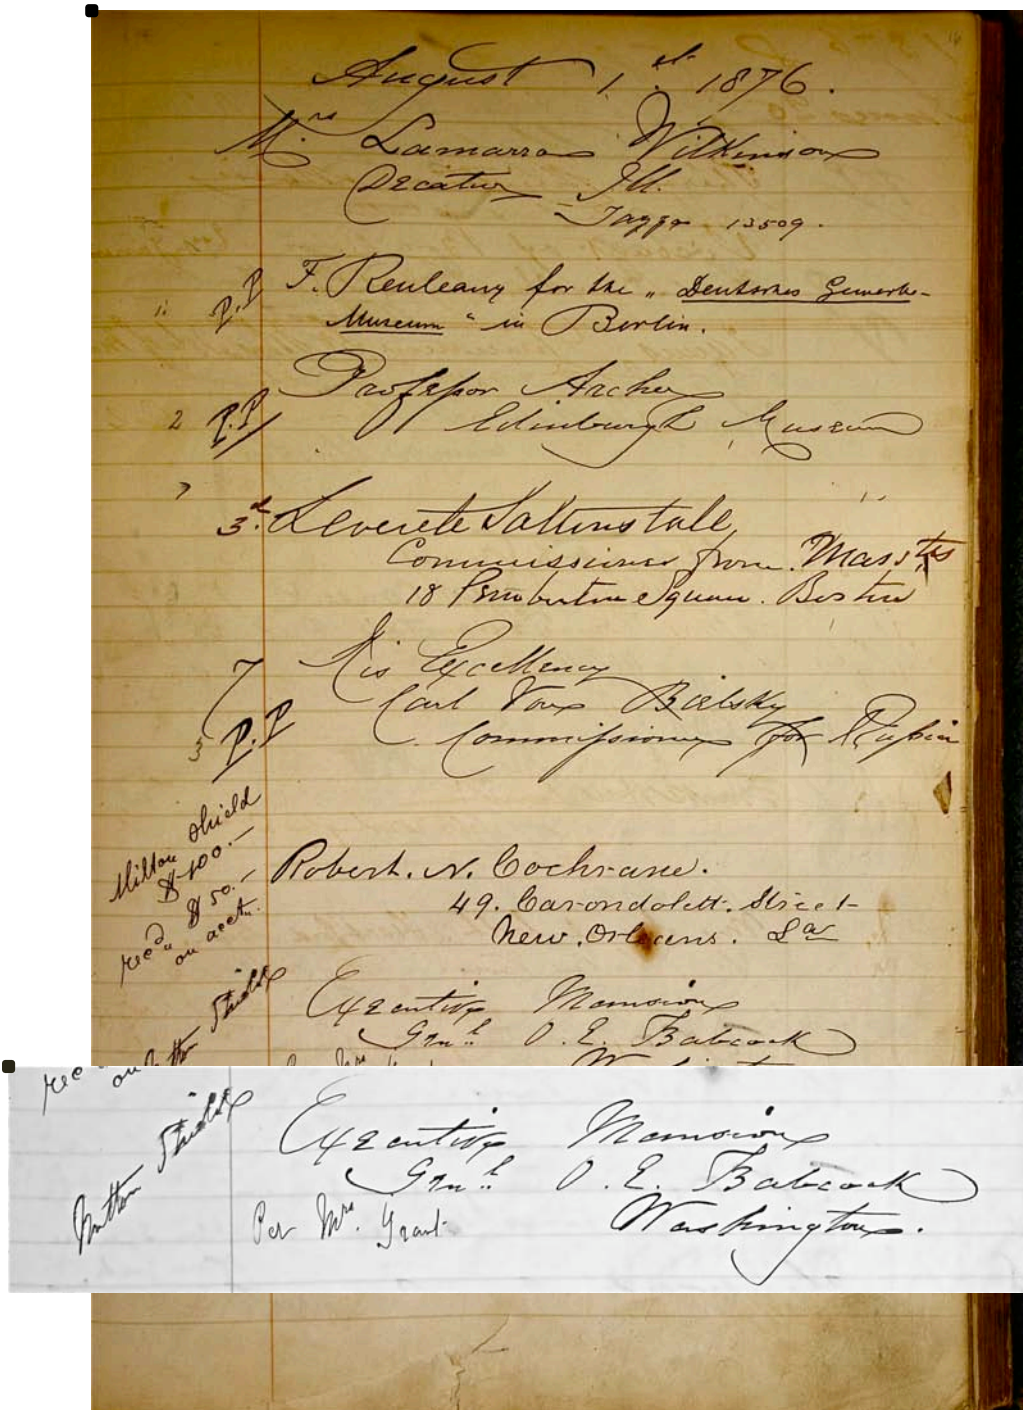 August 1st 1876.
Mrs Lamarra Wilkinson
Decatur Ill.
13509.
P.P F. Reuleaux for the „Deutsches Gewerbe-
Museum“ in Berlin.
2 P.P Professor Archer
Edinburgh Museum
3d. Leverett Saltonstall,
Commissioner from Massts
18 Pemberton Square. Boston
7 His Excellency
Carl Von Bielsky
3 P.P Commissioner for Russia
Milton Shield
$100.—
recd. $50.—
on acct.
Robert. N. Cochrane.
49. Carondolett. Street
New. Orleans. La
Shield
Executive Mansion
Genl. O. E. Babcock
rec
on
Milton Shield
Executive Mansion
Genl. O. E. Babcock
Per Mrs. Grant
Washington.